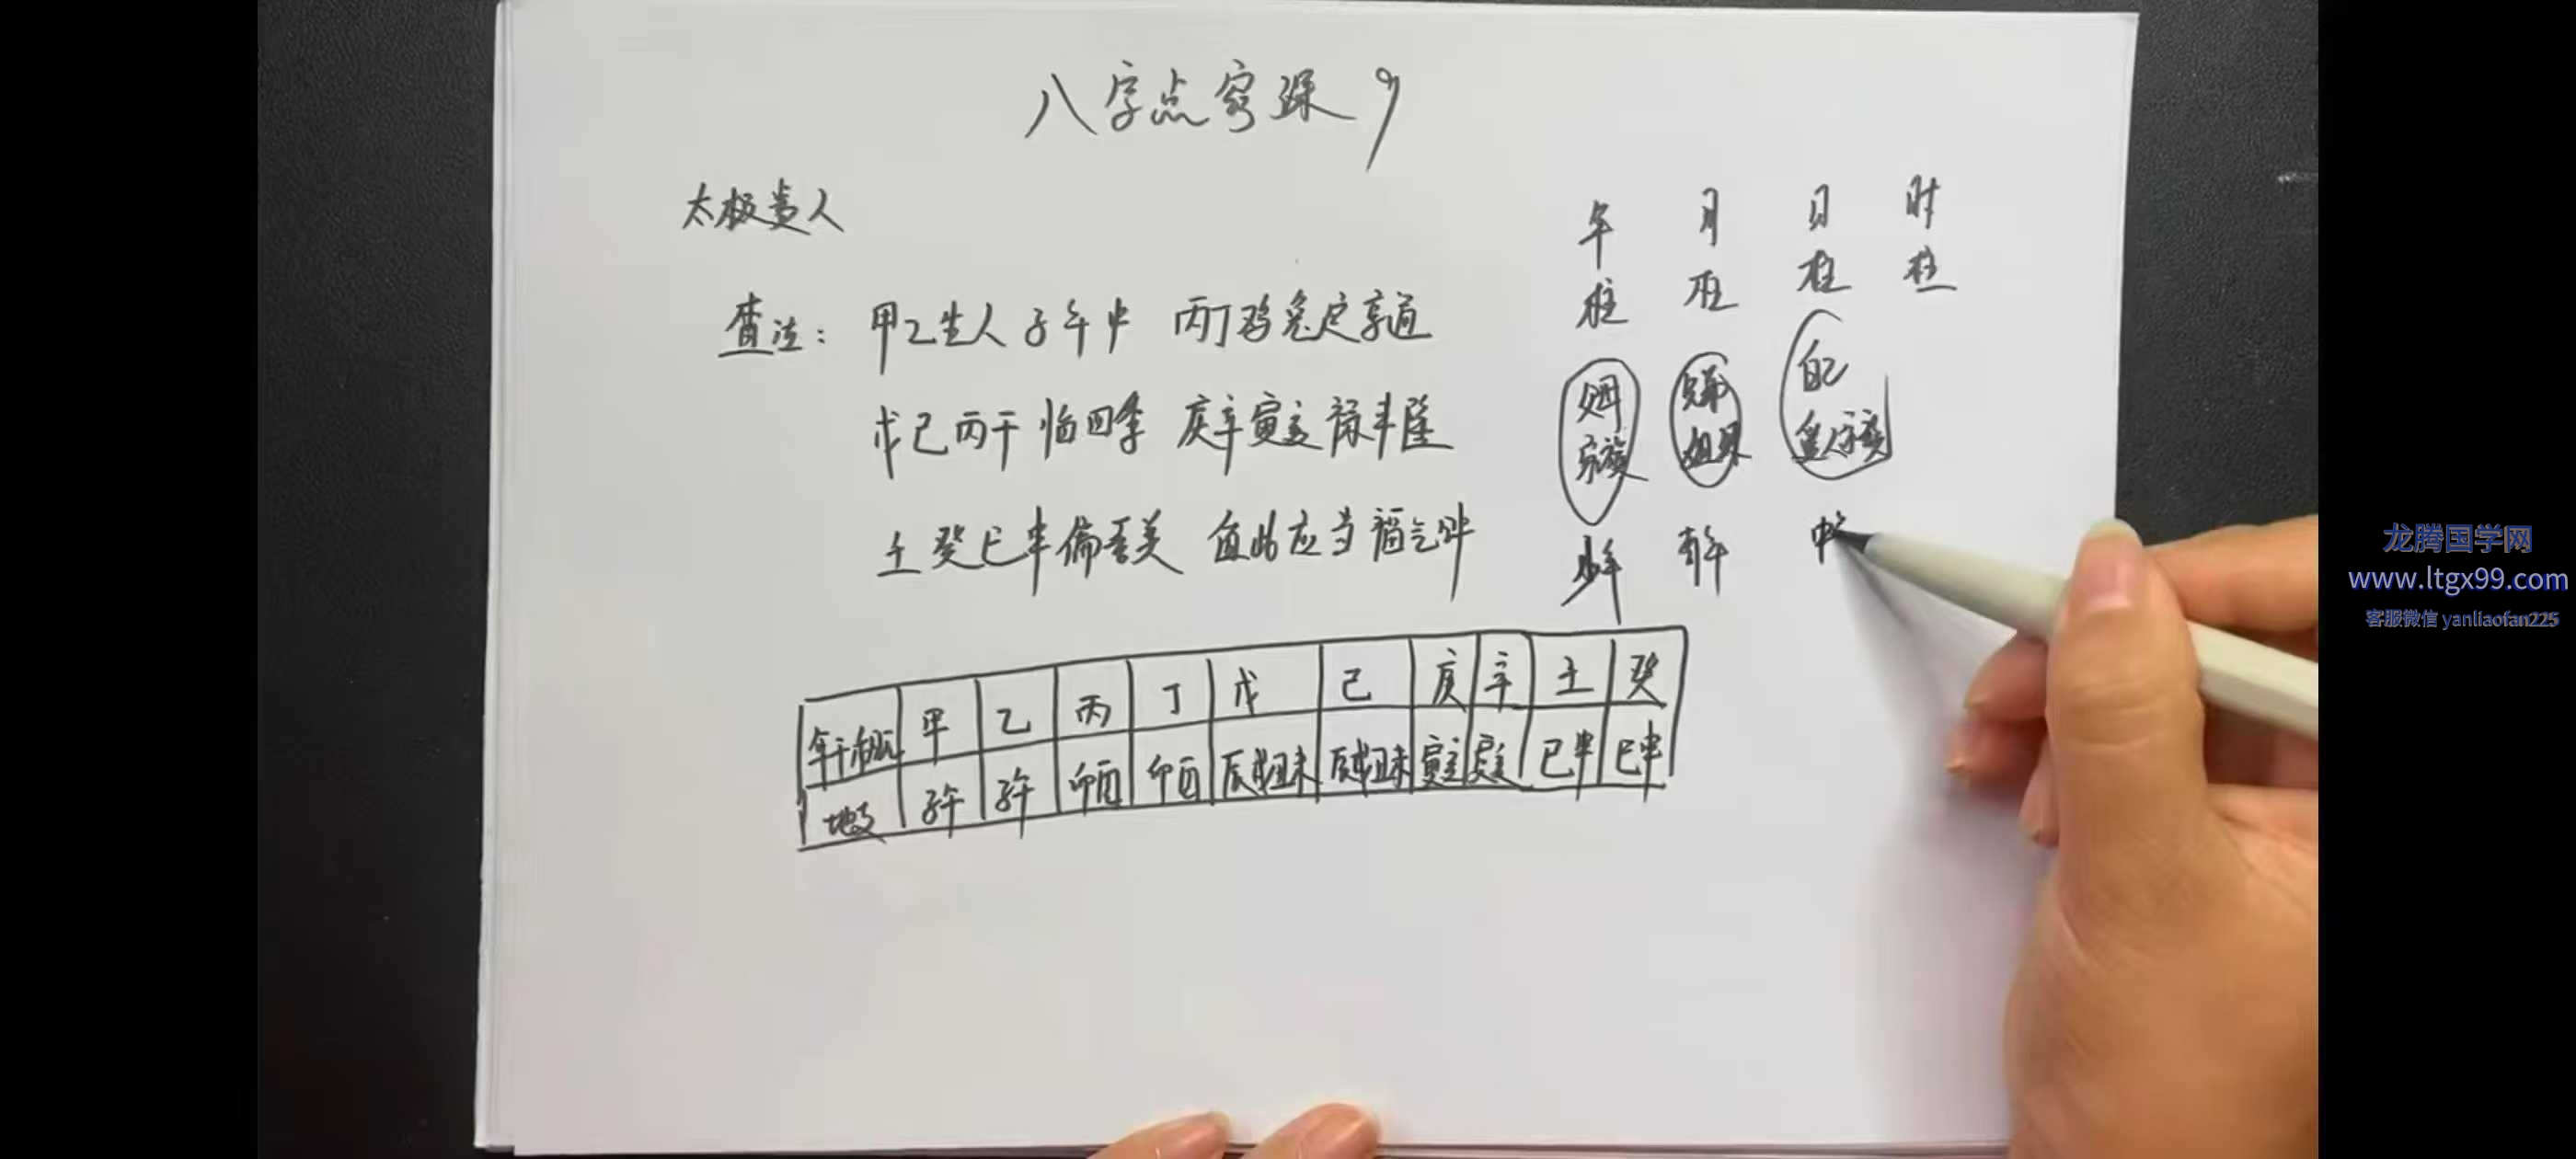 八字点窍课9
太极贵人
查法：甲乙生人子午中 丙丁鸡兔定亨通
戊己两干临四季 庚辛寅亥禄丰隆
壬癸巳申偏喜美 值此应当福气钟
年柱 月柱 日柱 时柱
父母 兄弟 自己
家族 姐妹
少年 青年 中
年干/日干 甲 乙 丙 丁 戊 己 庚 辛 壬 癸
地支 子午 子午 卯酉 卯酉 辰戌丑未 辰戌丑未 寅亥 寅亥 巳申 巳申
龙腾国学网
www.ltgx99.com
客服微信 yanliaofan225